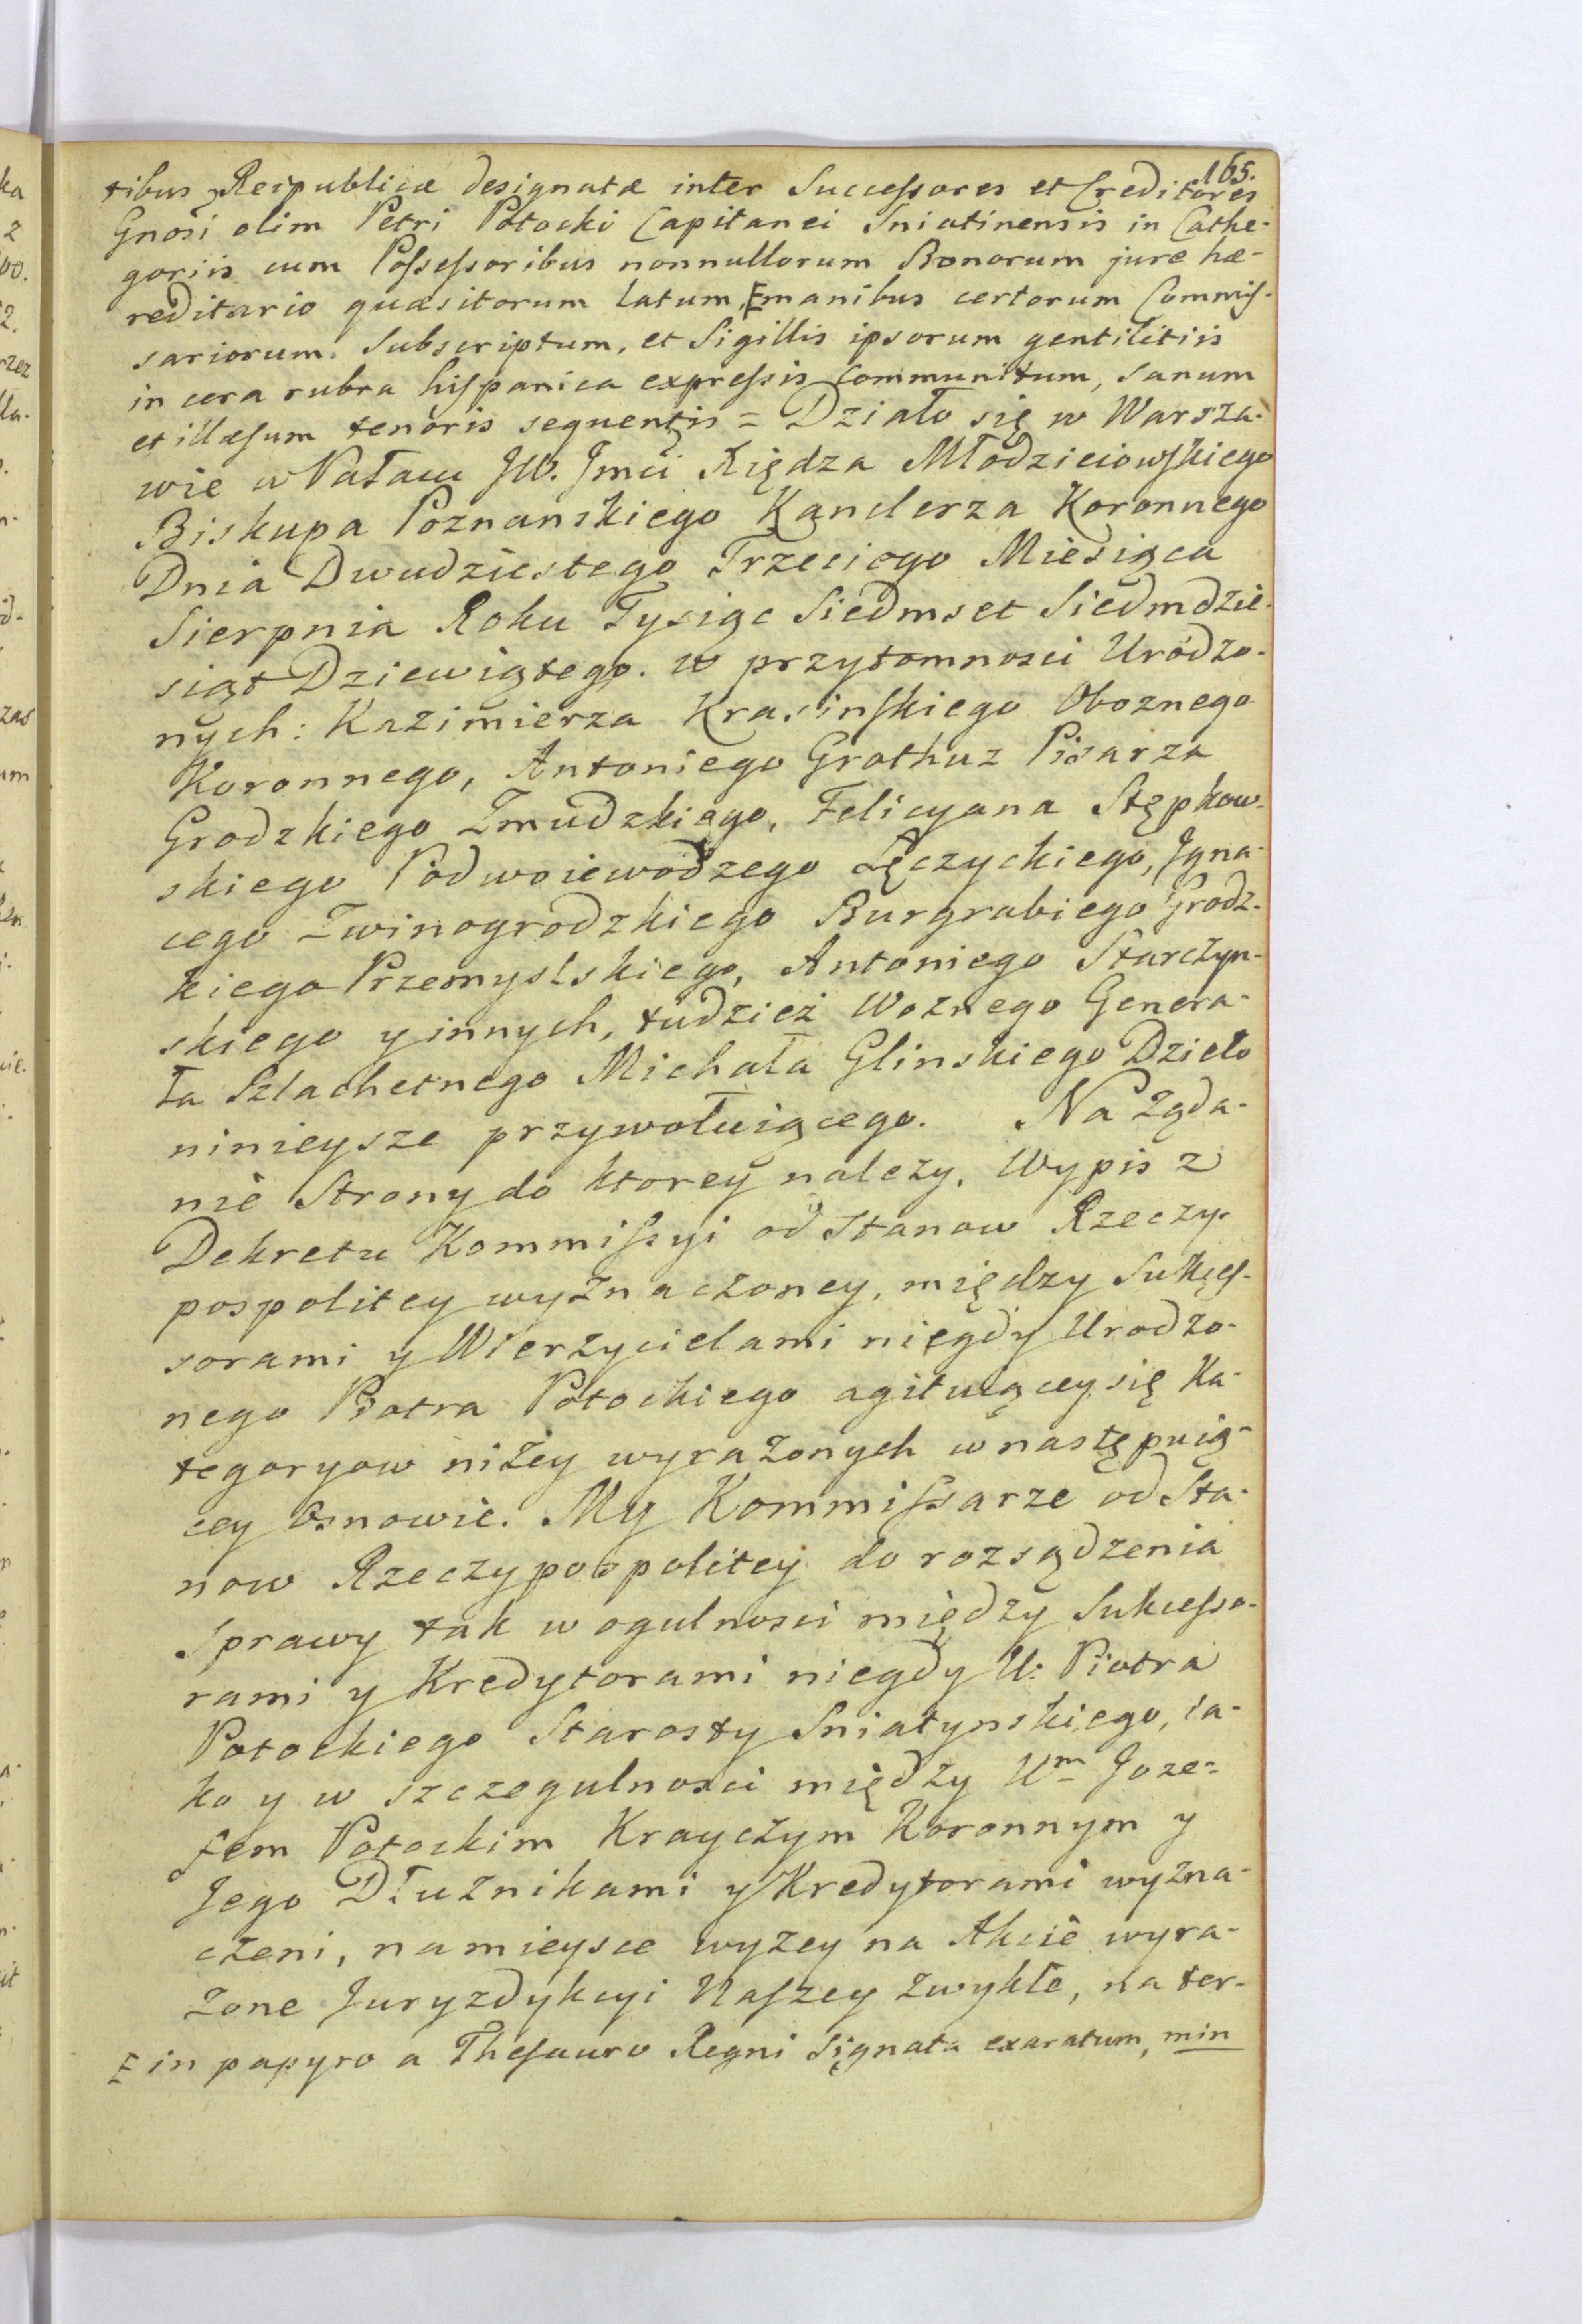 165.
tibus Reipublicæ designatæ inter Successores et Creditores
Gnosi olim Petri Potocki Capitanei Sniatinensis in Cathe-
goriis cum Possessoribus nonnullorum Bonorum jure hæ-
reditario quæsitorum latum, E manibus certorum Commis-
sariorum. Subscriptum, et Sigillis ipsorum gentilitiis
in cera rubra hispanica expressis communitum, sanum
et illæsum tenoris sequentis = Działo się w Warsza-
wie w Pałacu JW. Jmći Xiędza Młodzieiowskiego
Biskupa Poznanskiego Kanclerza Koronnego
Dnia Dwudziestego Trzeciego Miesiąca
Sierpnia Roku Tysiąc Siedmset Siedmdzie-
siąt Dziewiątego. w przytomnosci Urodzo-
nych: Kazimierza Krasinskiego Oboznego
Koronnego, Antoniego Grothuz Pisarza
Grodzkiego Żmudzkiego, Felicyana Stępkow-
skiego Podwoiewodzego Łęczyckiego, Igna-
cego Zwinogrodzkiego Burgrabiego Grodz-
kiego Przemyslskiego, Antoniego Starczyn-
skiego y innych, tudzież Woznego Genera-
ła Szlachetnego Michała Glinskiego Dzieło
ninieysze przywołuiącego. Na Żąda-
nie Strony do ktorey nalezy, Wypis z
Dekretu Kommissyi od Stanow Rzeczy-
pospolitey wyznaczoney, między Sukces-
sorami y Wierzycielami niegdy Urodzo-
nego Piotra Potockiego agituiącey się Ka-
tegoryow niżey wyrażonych w następuią-
cey Osnowie. My Kommissarze od Sta-
now Rzeczypospolitey do rozsądzenia
Sprawy tak w ogulnosci między Sukcesso-
rami y Kredytorami niegdy U: Piotra
Potockiego Starosty Sniatynskiego, ia-
ko y w szczegulnosci między Um Joze-
fem Potockim Krayczym Koronnym y
Jego Dłużnikami y Kredytorami wyzna-
czeni, na mieysce wyzey na Akcie wyra-
żone Juryzdykcyi Naszey zwykłe, na ter-
E in papyro a Thesauro Regni signata exaratum, min